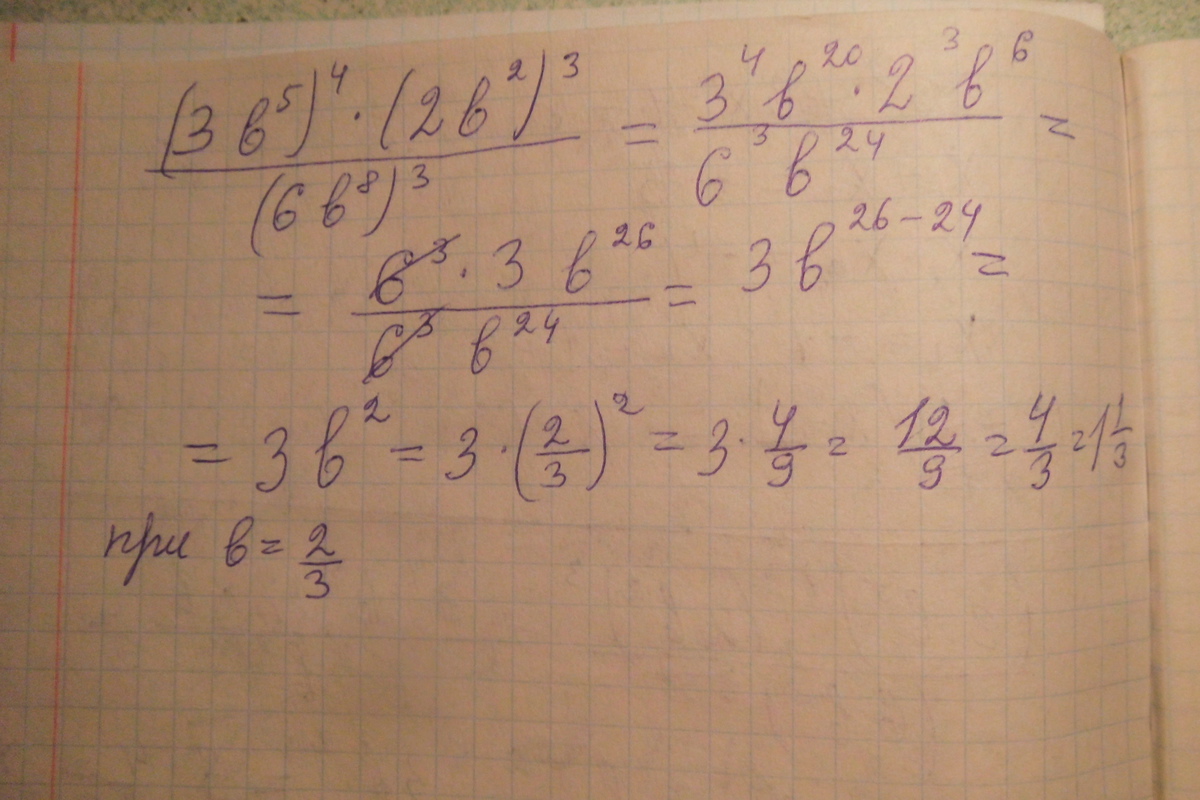 (3b⁵)⁴ · (2b²)³ / (6b⁸)³ = 3⁴b²⁰ · 2³b⁶ / 6³b²⁴ =
= 6³ · 3b²⁶ / 6³b²⁴ = 3b²⁶⁻²⁴ =
= 3b² = 3 · (2/3)² = 3 · 4/9 = 12/9 = 4/3 = 1 1/3
при b = 2/3